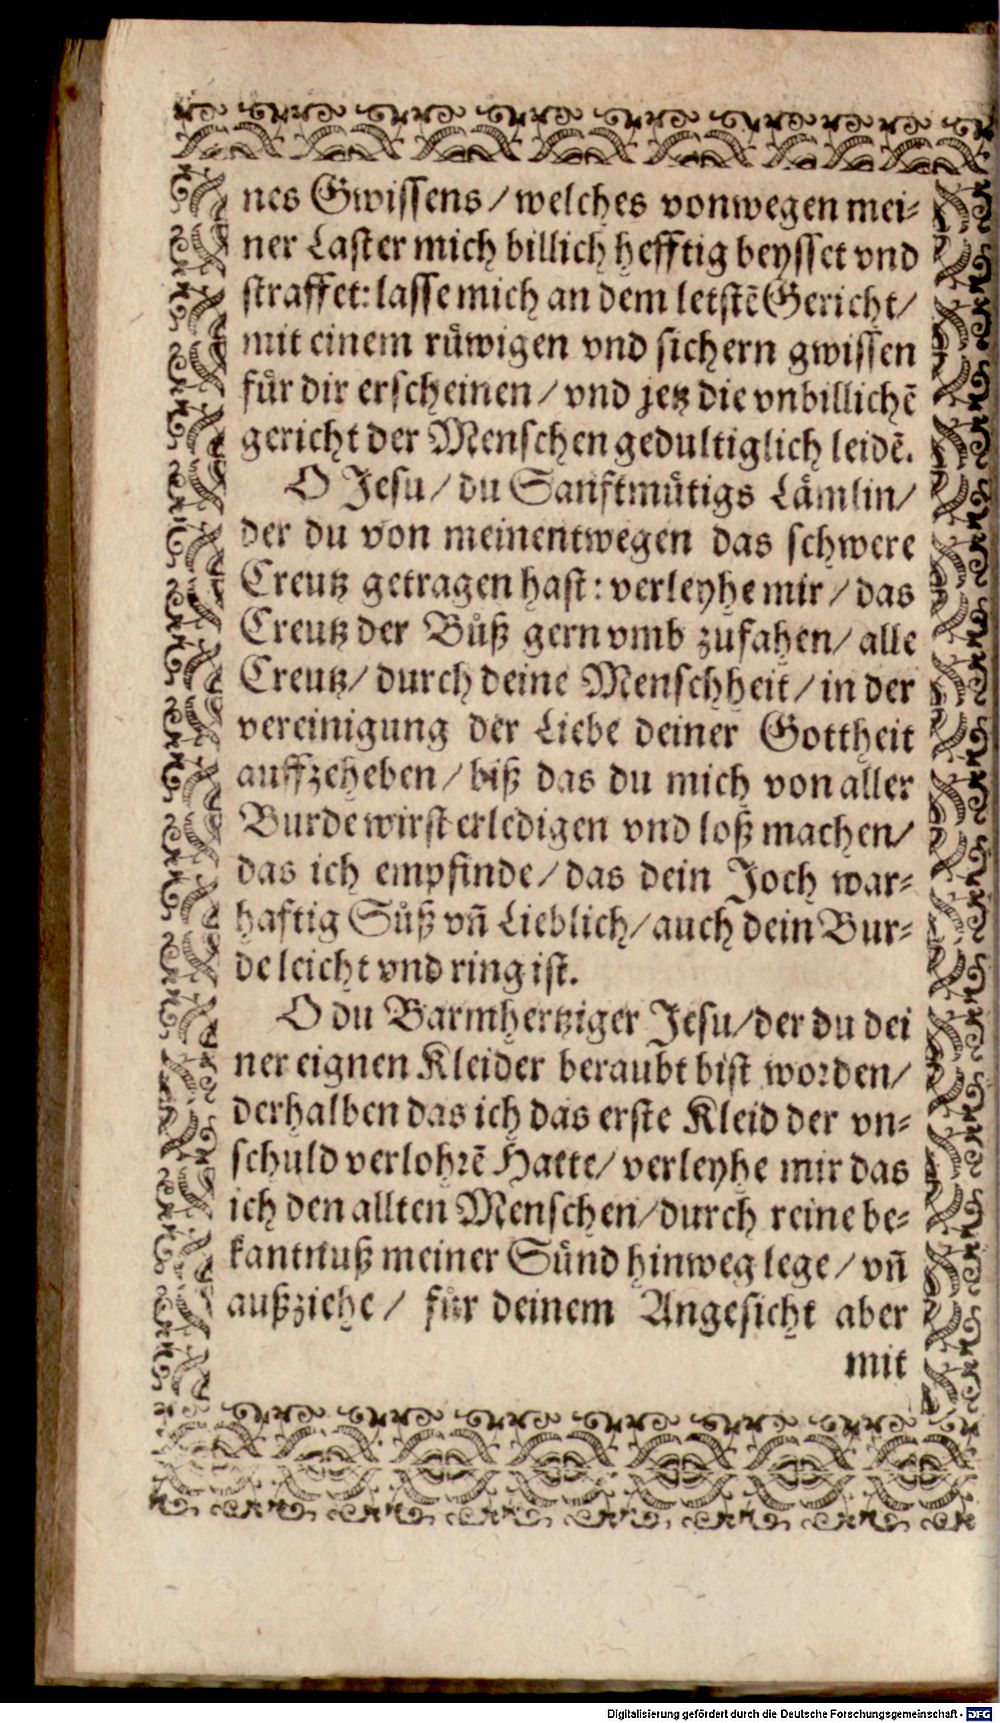 nes Gwissens / welches vonwegen mei⸗
ner Laster mich billich hefftig beysset vnd
straffet: lasse mich an dem letstẽ Gericht /
mit einem rüwigen vnd sichern gwissen
für dir erscheinen / vnd jetz die vnbillichẽ
gericht der Menschen gedultiglich leidẽ.
O Jesu / du Sanftmütigs Lämlin /
der du von meinentwegen das schwere
Creutz getragen hast: verleyhe mir / das
Creutz der Bůß gern vmb zufahen / alle
Creutz / durch deine Menschheit / in der
vereinigung der Liebe deiner Gottheit
auffzeheben / biß das du mich von aller
Burde wirst erledigen vnd loß machen /
das ich empfinde / das dein Joch war⸗
haftig Süß vñ Lieblich / auch dein Bur⸗
de leicht vnd ring ist.
O du Barmhertziger Jesu / der du dei
ner eignen Kleider beraubt bist worden /
derhalben das ich das erste Kleid der vn⸗
schuld verlohrẽ Hatte / verleyhe mir das
ich den allten Menschen / durch reine be⸗
kantnuß meiner Sünd hinweg lege / vñ
außziehe / für deinem Angesicht aber
mit
Digitalisierung gefördert durch die Deutsche Forschungsgemeinschaft - DFG